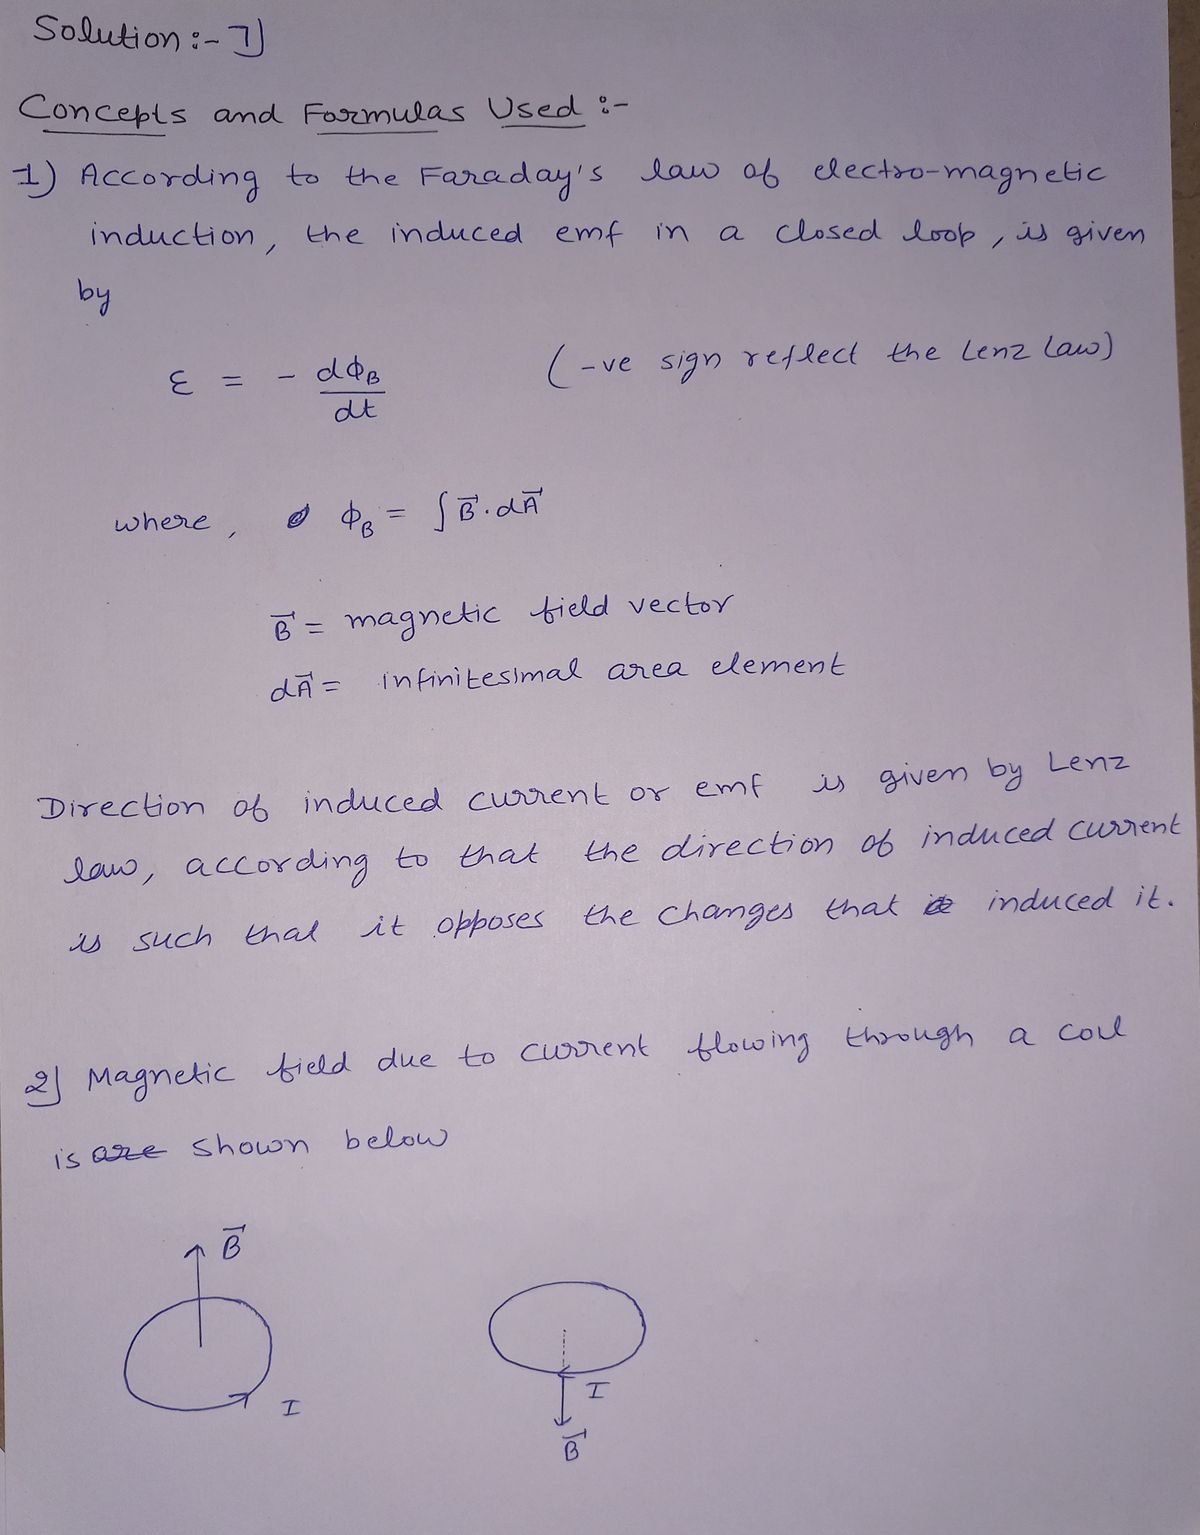 Solution :- 7]
Concepts and Formulas Used :-
1) According to the Faraday's law of electro-magnetic
induction, the induced emf in a closed loop, is given
by
ε = - dΦB/dt (-ve sign reflect the Lenz Law)
where, ΦB = ∫B⃗.dA⃗
B⃗ = magnetic field vector
dA⃗ = infinitesimal area element
Direction of induced current or emf is given by Lenz
law, according to that the direction of induced current
is such that it opposes the changes that induced it.
2] Magnetic field due to current flowing through a coil
is are shown below
B⃗
I
I
B⃗